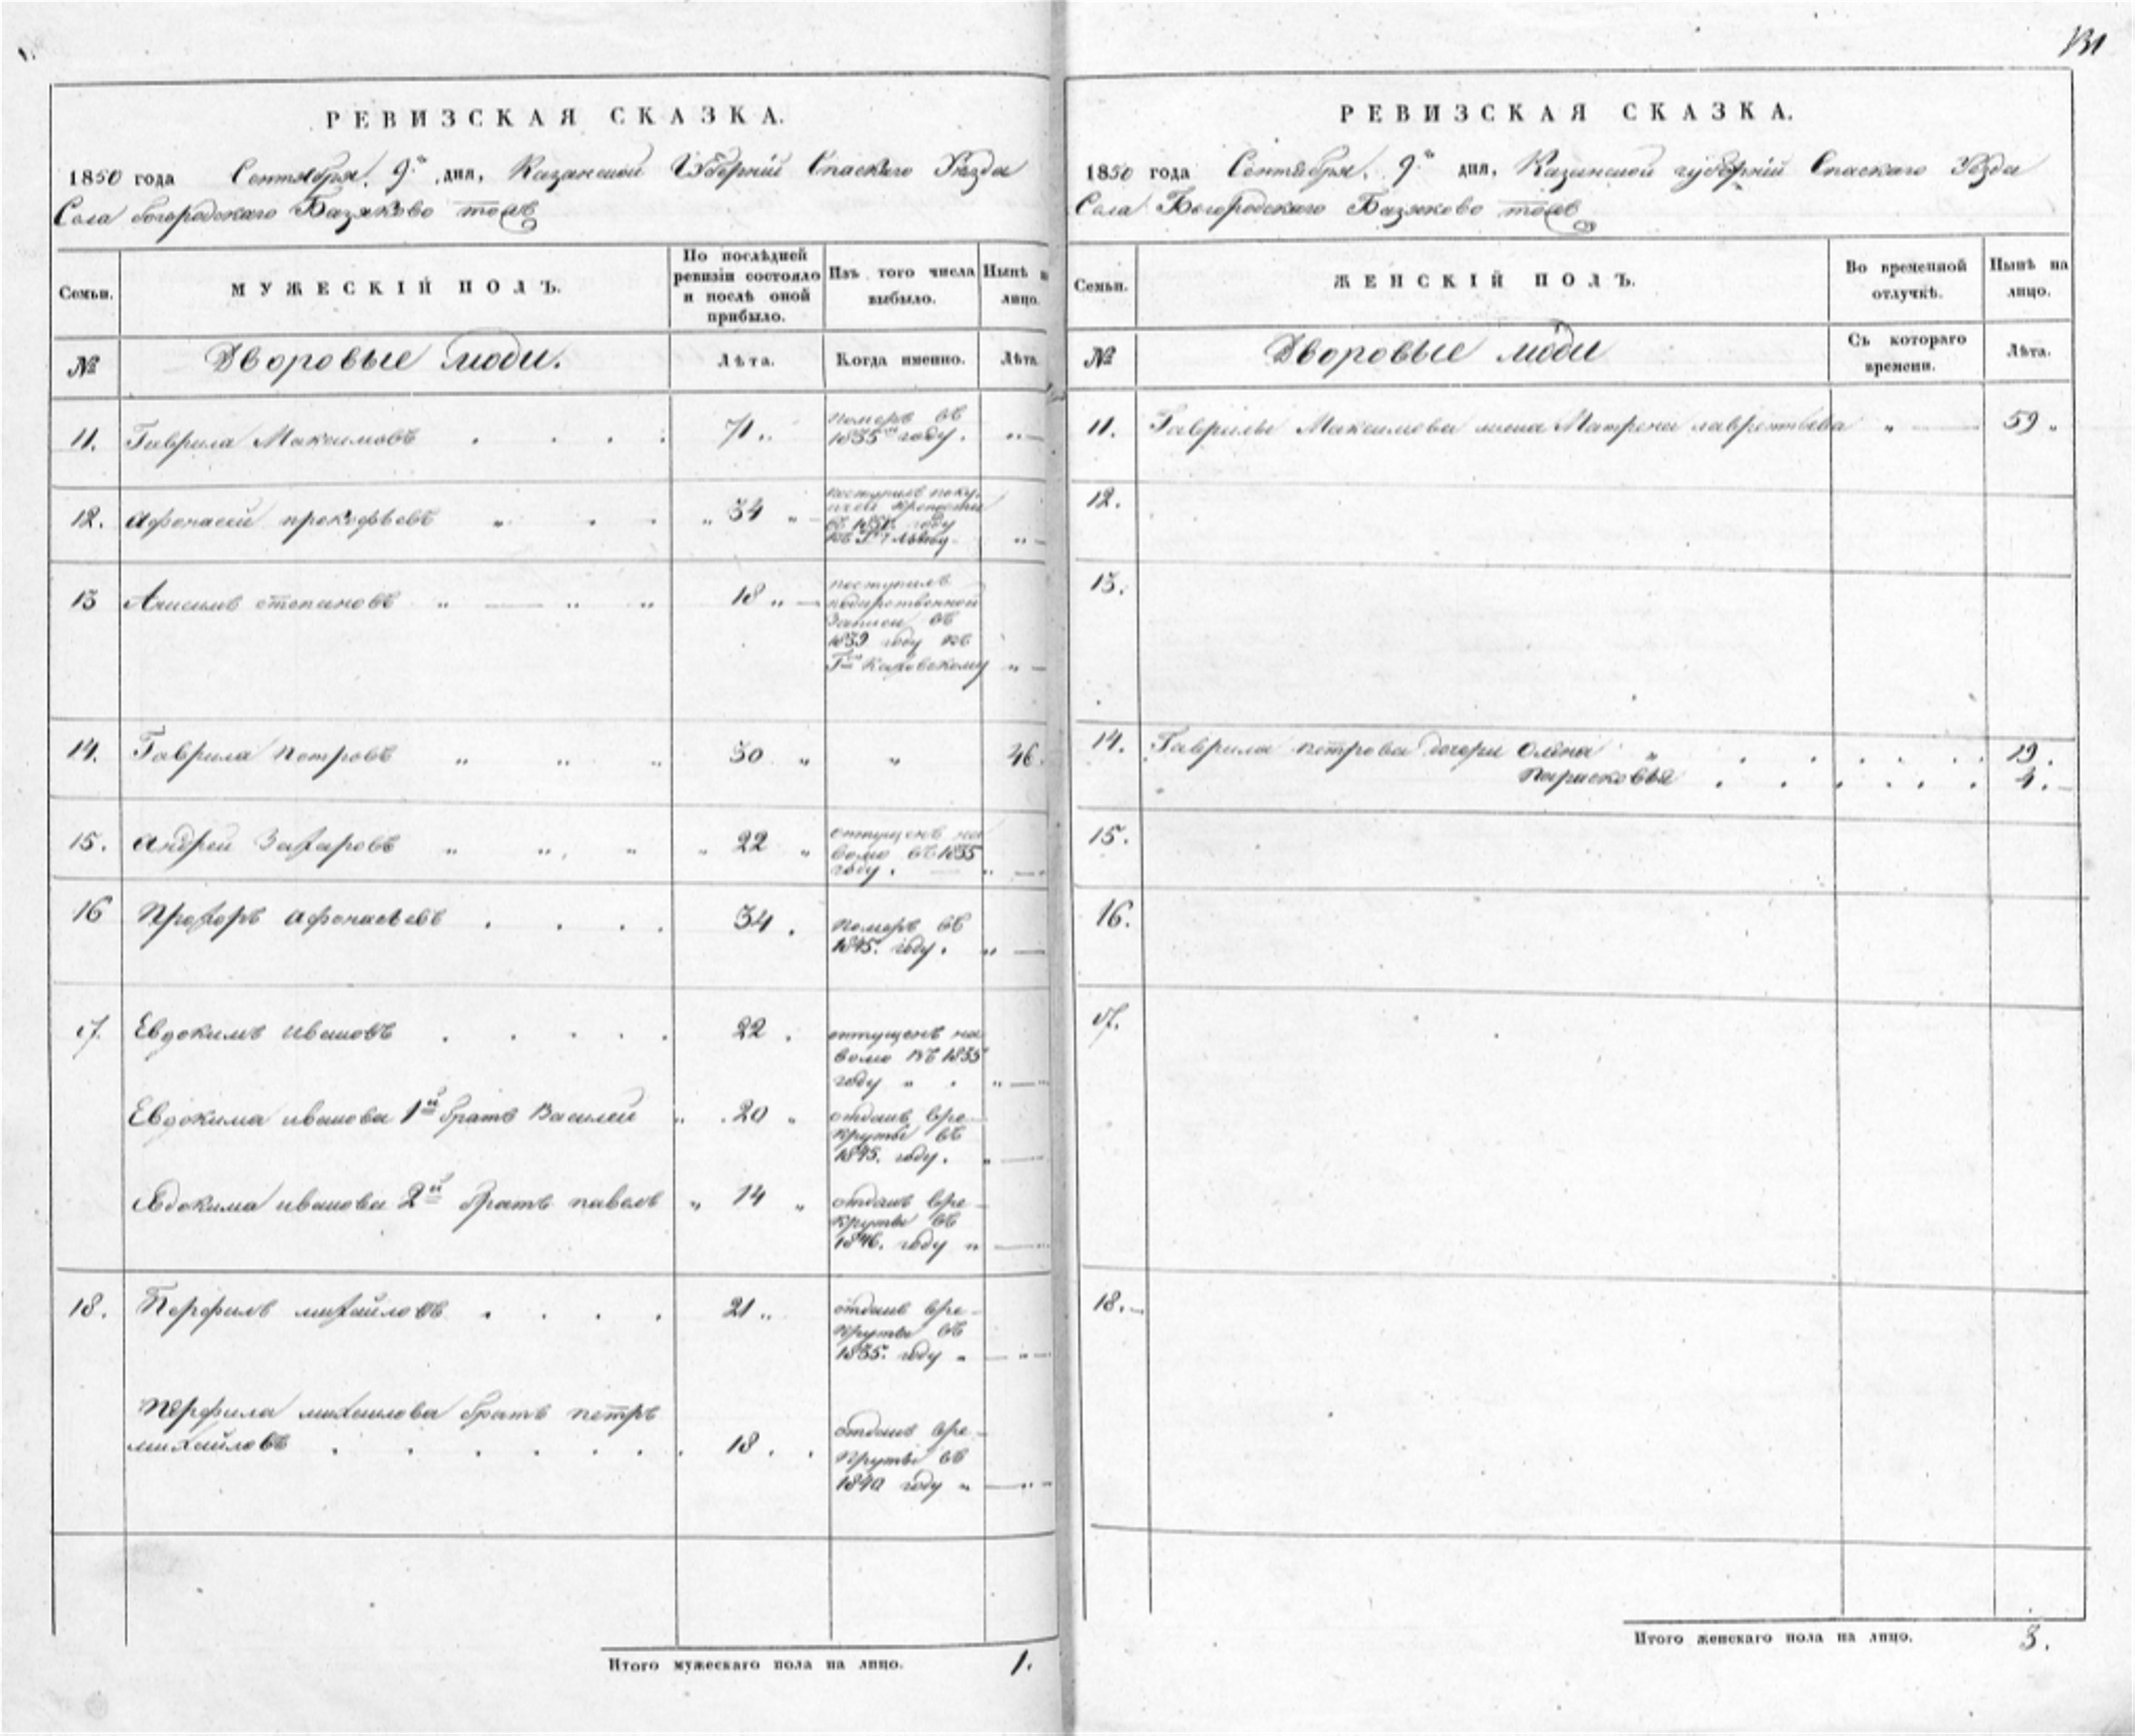 131
РЕВИЗСКАЯ СКАЗКА.
1850 года Сентября. 9го дня, Казанской Губернiи Спаскаго Уѣзда
Села богородскаго Базяково тожъ
Семьи.
МУЖЕСКIЙ ПОЛЪ.
По послѣдней ревизiи состояло и послѣ оной прибыло.
Изъ того числа выбыло.
Нынѣ на лицо.
№
Дворовые люди.
Лѣта.
Когда именно.
Лѣта
11. Гаврила Максимовъ 71 „
померъ въ
1835м году.
12. Афонасей прокофьевъ „ 34 „
поступилъ поку-
пкой крепости
въ году
къ Гну
13 Анисимъ степановъ „ „ „ 18 „
поступилъ
подарственной
записи въ
1839 году къ
Гну
14. Гаврила Петровъ „ „ „ 30 „ „ 46.
15. Андрей Захаровъ „ „ „ „ 22 „
отпущенъ на
волю въ 1835
году.
16 Прохоръ афонасьевъ 34.
померъ въ
1845. году.
17. Евдокимъ ивановъ 22.
отпущенъ на
волю въ 1835
году „
Евдокима иванова 1й братъ Василей „ 20 „
отданъ вре-
круты въ
1845. году.
Евдокима иванова 2й братъ павелъ „ 14 „
отданъ вре-
круты въ
1846. году „
18. Перфилъ михайловъ 21 „
отданъ вре-
круты въ
1835. году „
Перфила михаилова братъ петръ
михайловъ 18.
отданъ вре-
круты въ
1840 году „
Итого мужескаго пола на лицо. 1.
РЕВИЗСКАЯ СКАЗКА.
1850 года Сентября. 9го дня, Казанской губернiй Спаскаго Уѣзда
Села Богородскаго Базяково тожъ
Семьи.
ЖЕНСКIЙ ПОЛЪ.
Во временной отлучкѣ.
Нынѣ на лицо.
№
Дворовые люди
Съ котораго времени.
Лѣта.
11. Гаврилы Максимова жена Матрена лаврентьева „ 59 „
12.
13.
14. Гаврила петрова дочери Олена „ 19.
Парасковья 4.
15.
16.
17.
18.
Итого женскаго пола на лицо. 3.